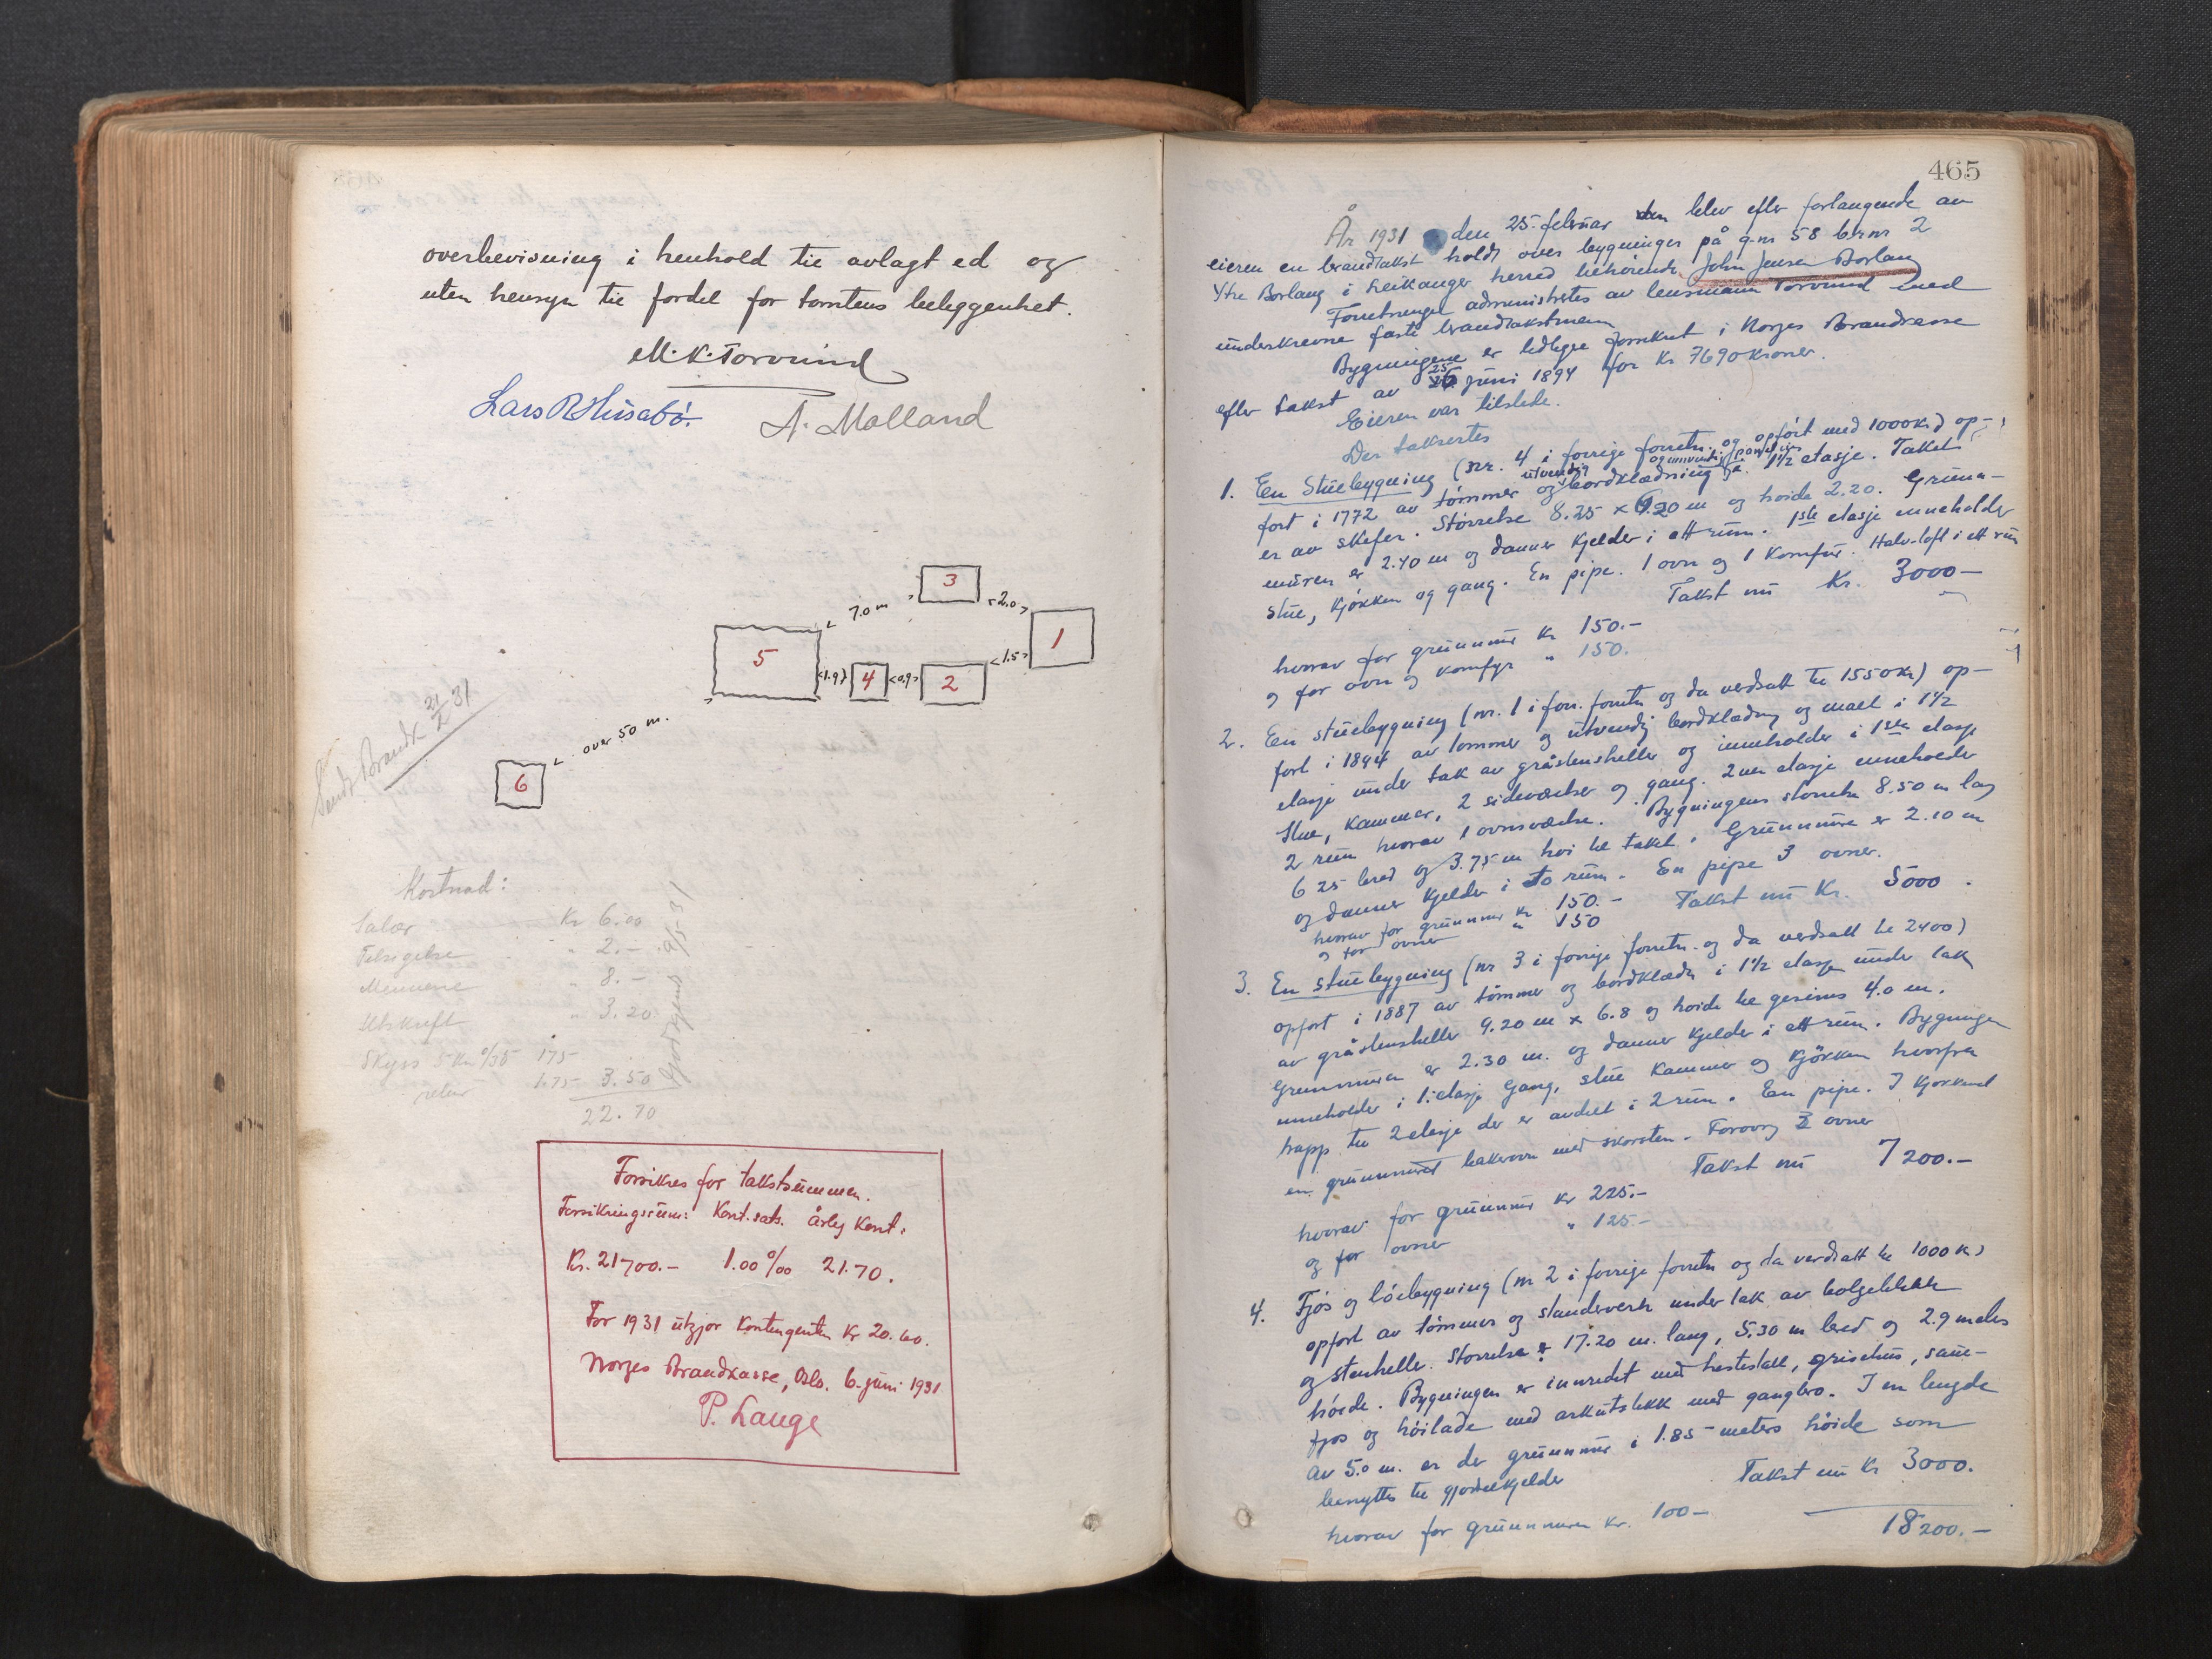 overbevisning i henhold til avlagt ed og
uten hensyn til fordel for tomtens beleggenhet.
M. K. Torvund
Lars R Husabø.
A. Molland
3
7.0 m
2.0
1
5
1.9
4
0.9
2
1.5
over 50 m.
6
Sendt Brandk 21/2 31
Kostnad:
Salær Kr 6.00
Tilsigelse " 2.-
Mennene " 8.-
Utskrift " 3.20
Skyss 5 km 0/35 175
retur 1.75 3.50
22.70
Godkjent 9/5-31
Forsikres for takstsummen.
Forsikringssum: Kont.sats. årlig Kont.
Kr. 21700.- 1.00 0/00 21.70.
For 1931 utgjør Kontingenten Kr 20.60.
Norges Brandkasse, Oslo. 6. juni 1931
P. Lange
465
År 1931 den 25. februar blev efter forlangende av
eieren en brandtakst holdt over bygninger på g.nr 58 br.nr 2
Ytre Borlaug i Leikanger herred tilhørende John Jensen Borlaug
Forretningen administrertes av lensmann Torvund med
underskrevne faste brandtakstmenn
Bygningene er tidligere forsikret i Norges Brandkasse
efter takst av 25 juni 1894 for Kr 7690 kroner.
Eieren var tilstede.
Der taksertes
1. En Stuebygning (nr. 4 i forrige forretn. og opført med 1000 kr) op-
ført i 1772 av tømmer og utvendig bordklædning og innvendig panel i 1½ etasje. Taket
er av skifer. Størrelse 8.25 x 6.20 m og høide 2.20. Grunn-
muren er 2.40 m og danner kjelder i ett rum. 1ste etasje inneholder
stue, kjøkken og gang. En pipe. 1 ovn og 1 komfur. Halv-loft i ett rum
Takst nu Kr. 3000-
hvorav for grunnmur Kr 150.-
og for ovn og komfyr " 150.
2. En stuebygning (nr. 1 i forr. forretn og da verdsatt til 1550 kr) op-
ført i 1894 av tømmer og utvendig bordklædning og malt i 1½
etasje under tak av gråstensheller og inneholder i 1ste etasje
stue, kammer, 2 sideværelser og gang. 2nen etasje inneholder
2 rum hvorav 1 ovnsværelse. Bygningens størrelse 8.50 m lang
6 25 bred og 3.75 m høi til taket. Grunnmuren er 2.10 m
og danner kjelder i to rum. En pipe 3 ovner.
hvorav for grunnmur Kr 150.- Takst nu Kr. 5000.
og for ovner " 150
3. En stuebygning (nr 3 i forrige forretn. og da verdsatt til 2400)
opført i 1887 av tømmer og bordklædn i 1½ etasje under tak
av gråstensheller 9.20 m x 6.8 og høide til gesims 4.0 m.
Grunnmuren er 2.30 m. og danner kjelder i ett rum. Bygningen
inneholder i 1. etasje Gang, stue kammer og kjøkken hvorfra
trapp til 2 etasje der er avdelt i 2 rum. En pipe. I kjøkkenet
en grunnmuret bakerovn med skorsten. Forøvrig 2 ovner
Takst nu 7200.-
hvorav for grunnmur Kr 225.-
og for ovner " 125.-
4. Fjøs og løebygning (nr 2 i forrige forretn og da verdsatt til 1000 kr)
opført av tømmer og standerverk under tak av bølgeblikk
og stenheller. Størrelse er 17.20 m. lang, 5.30 m bred og 2.9 meter
høide. Bygningen er innredet med hestestall, grisehus, saue-
fjøs og høilade med gangbro. I en lengde
av 5.0 m. er der grunnmur i 1.85 meters høide som
benyttes til gjødselkjelder
Takst nu Kr 3000.
hvorav for grunnmuren Kr. 100-
18200.-